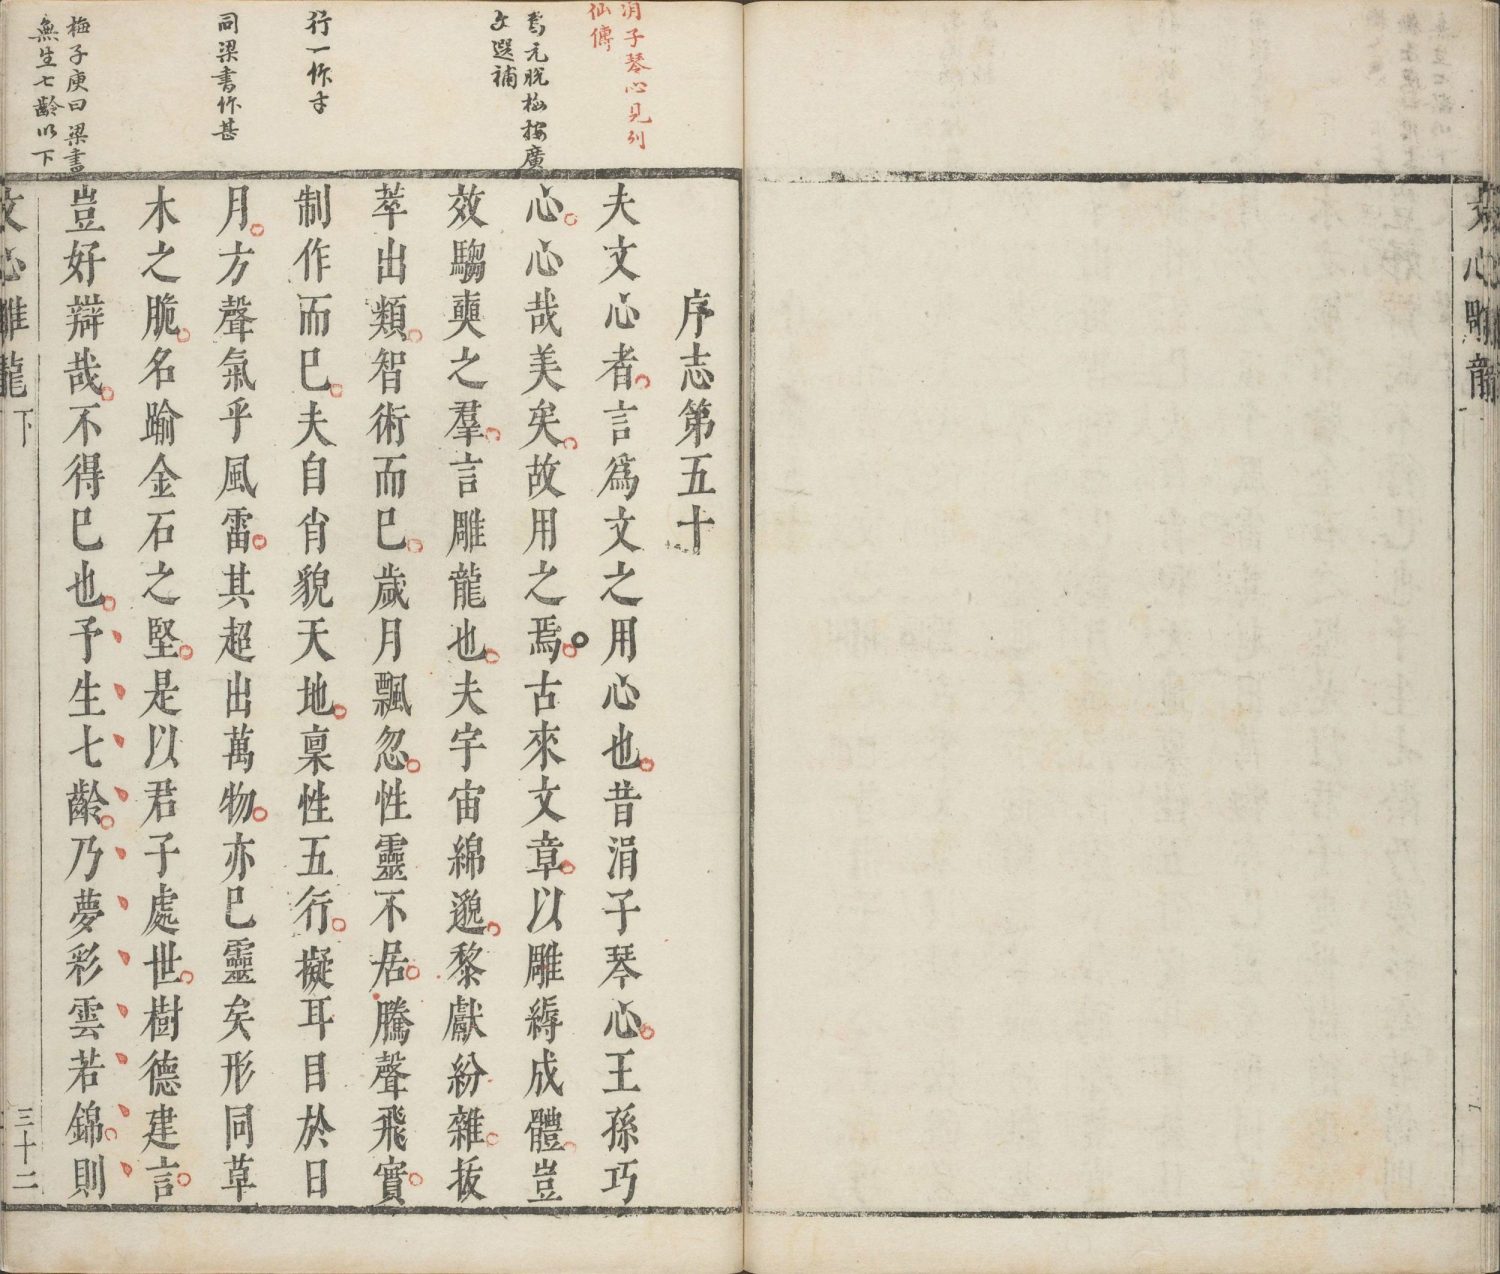 文心雕龍
序志第五十
夫文心者言爲文之用心也昔涓子琴心王孫巧
心心哉美矣故用之焉古來文章以雕縟成體豈
效騶奭之羣言雕龍也夫宇宙綿邈黎獻紛雜拔
萃出類智術而已歲月飄忽性靈不居騰聲飛實
制作而已夫自肖貌天地稟性五行擬耳目於日
月方聲氣乎風雷其超出萬物亦已靈矣形同草
木之脆名踰金石之堅是以君子處世樹德建言
豈好辯哉不得已也予生七齡乃夢彩雲若錦則
涓子琴心見列
仙傳
焉元脫梅按廣
文選補
行一作才
同梁書作甚
梅子庚曰梁書
無生七齡以下
文心雕龍
下
三十二